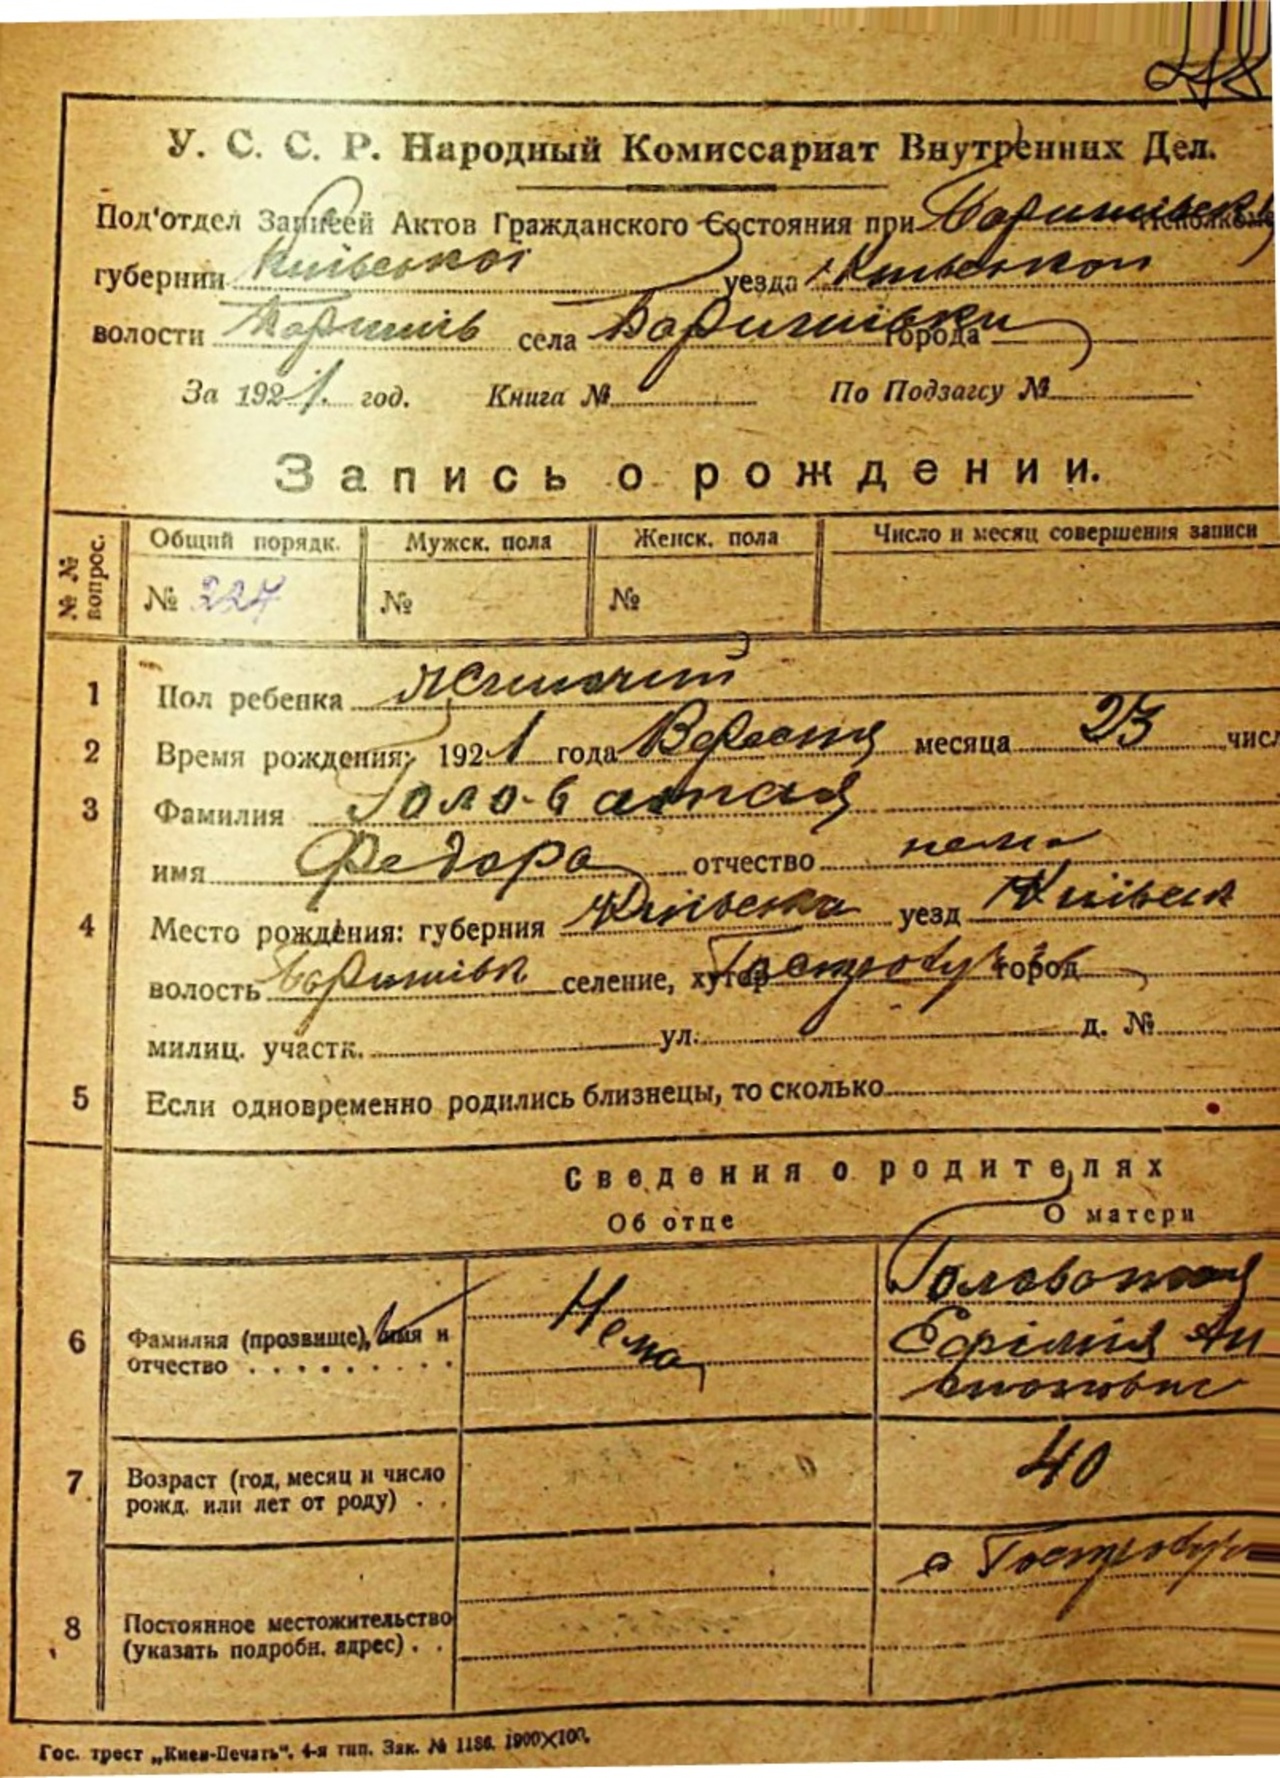 248
У. С. С. Р. Народный Комиссариат Внутренних Дел.
Под'отдел Записей Актов Гражданского Состояния при
губернии Київської уезда Київської
волости Баришів села Баришівки города
За 1921. год. Книга № По Подзагсу №
Запись о рождении.
№ № вопрос. Общий порядк. Мужск. пола Женск. пола Число и месяц совершения записи
№ 327 № №
1 Пол ребенка жиночий
2 Время рождения: 1921 года Вересня месяца 23 числ
3 Фамилия Головатая
имя Федора отчество нема
4 Место рождения: губерния Київська уезд Київськ
волость Баришівк селение, хутор город
милиц. участк. ул. д. №
5 Если одновременно родились близнецы, то сколько
Сведения о родителях
Об отце О матери
6 Фамилия (прозвище), имя и отчество Нема Головатая Єфімія
7 Возраст (год, месяц и число рожд. или лет от роду) . . 40
8 Постоянное местожительство (указать подробн. адрес) . .
Гос. трест „Киев-Печать". 4-я тип. Зак. № 1186. 1900×100.